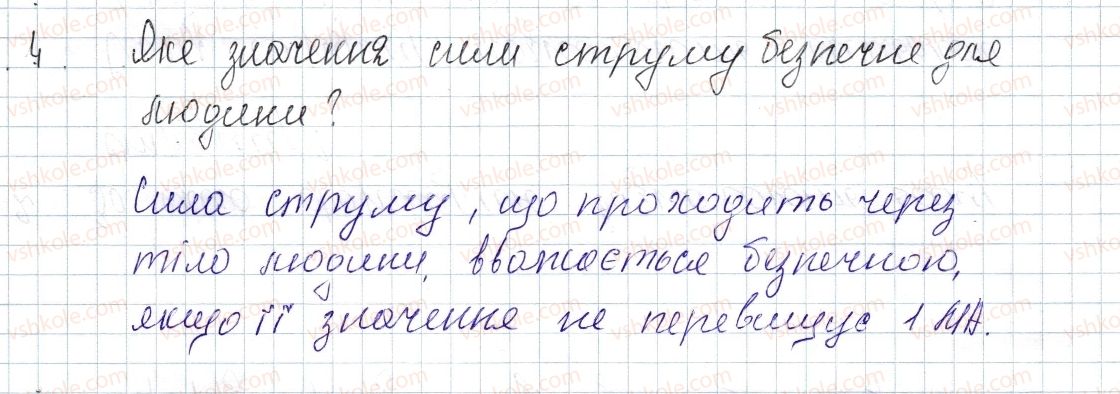 4. Яке значення сили струму безпечне для
людини?
Сила струму, що проходить через
тіло людини, вважається безпечною,
якщо її значення не перевищує 1 мА.